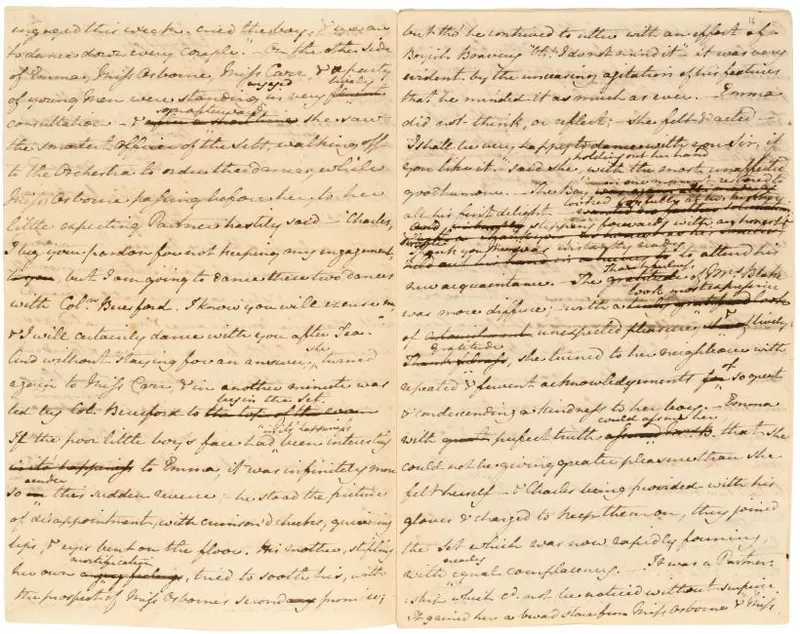 engaged this week." cried the boy, "& we are
to dance down every couple."— On the other side
of Emma, Miss Osborne, Miss Carr, & a party
of young Men were standing engaged in very lively
consultation — & soon afterwards she saw
the smartest officer of the sett, walking off
to the Orchestra to order the dance, while
Miss Osborne passing before her, to her
little expecting Partner hastily said — "Charles,
I beg your pardon for not keeping my engagement,
but I am going to dance these two dances
with Coln Beresford. I know you will excuse me
& I will certainly dance with you after Tea.
And without staying for an answer, she turned
again to Miss Carr, & in another minute was
led by Col. Beresford to begin the set.
to the top of the room
If the poor little boy's face had in it's happiness been interesting
in its happiness to Emma, it was infinitely more
so under this sudden reverse; — he stood the picture
of disappointment, with crimson'd cheeks, quivering
lips, & eyes bent on the floor. His mother, stifling
her own mortification, tried to sooth his, with
the prospect of Miss Osborne's second promise;
16
but tho' he contrived to utter with an effort of
Boyish Bravery "Oh! I do not mind it" — it was very
evident by the unceasing agitation of his features
that he minded it as much as ever. — Emma
did not think, or reflect; — she felt & acted —
"I shall be very happy to dance with you Sir, if
you like it." said she, holding out her hand with the most unaffected
good humour. — The Boy in one moment restored to
all his first delight — looked joyfully at his Mother
and stepping forwards with an honest &
simple Thank you Maam was instantly ready
to attend his
new acquaintance. — The Thankfulness of Mrs. Blake
was more diffuse; — with a look, most expressive
of unexpected pleasure, & lively
Gratitude, she turned to her neighbour with
repeated & fervent acknowledgements of so great
& condescending a kindness to her boy. — Emma
with perfect truth could assure her that she
could not be giving greater pleasure than she
felt herself — & Charles being provided with his
gloves & charged to keep them on, they joined
the Set which was now rapidly forming,
with nearly equal complacency. — It was a Partner-
ship which cd. not be noticed without surprise.
It gained her a broad stare from Miss Osborne & Miss